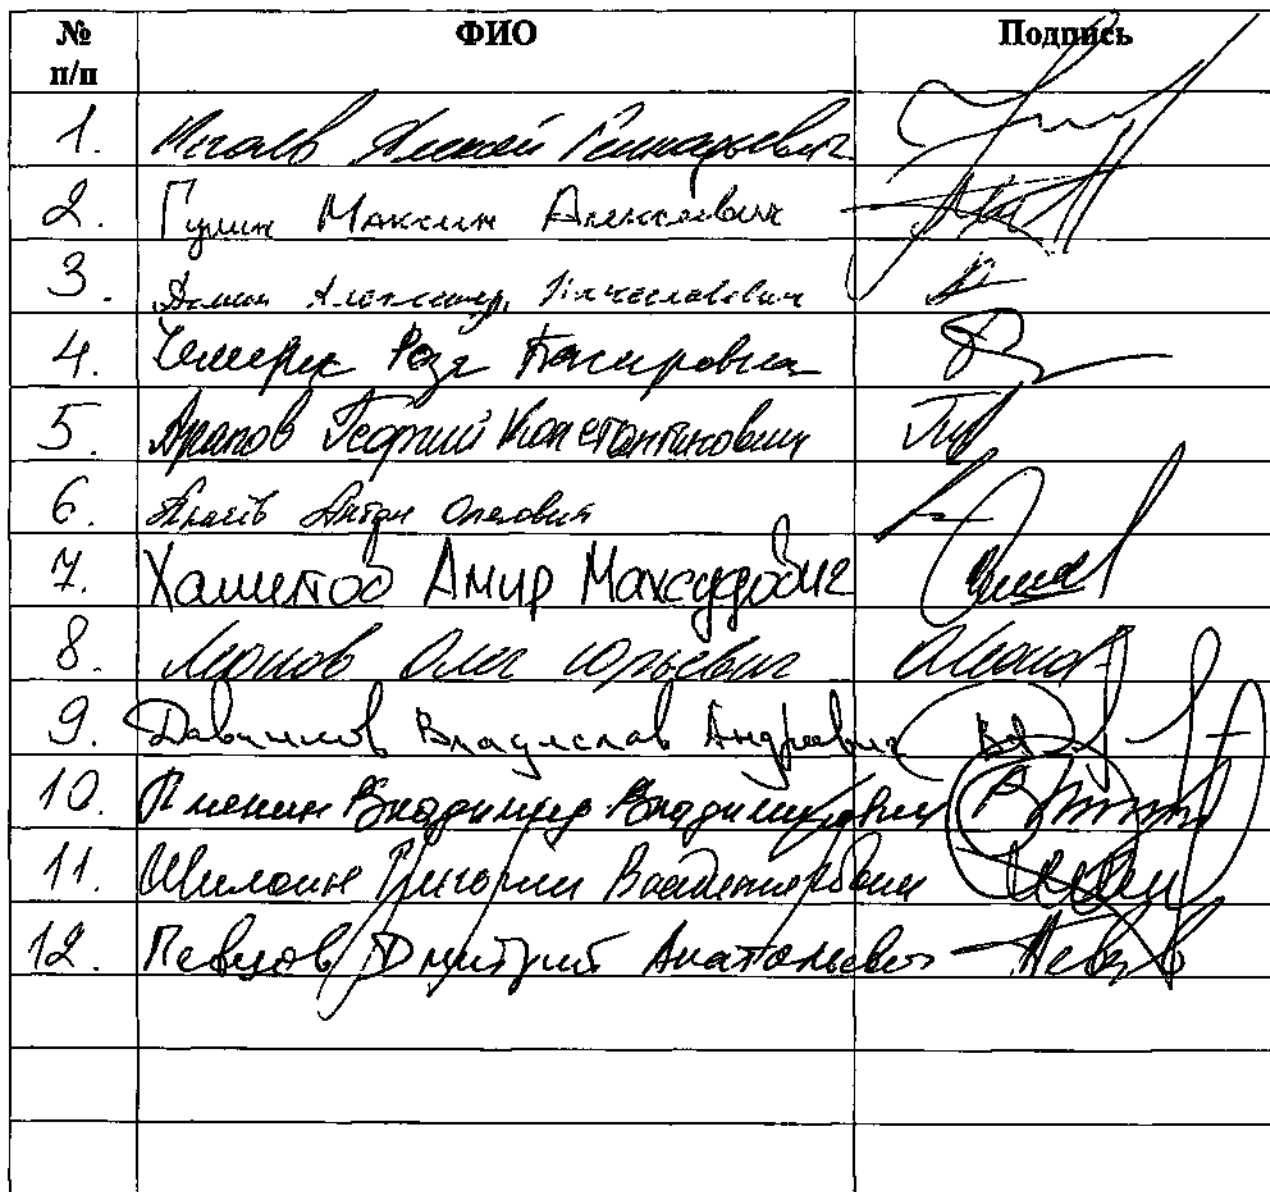 № п/п ФИО Подпись
1. Алексей Геннадьевич
2. Гулин Максим Алексеевич
3. Александр Вячеславович
4. Чемерис Роза Басировна
5. Арапов Георгий Константинович
6. Антон Олегович
7. Хамитов Амир Махсудович
8. Леонов Олег Юрьевич
9. Даванков Владислав Андреевич
10. Плякин Владимир Владимирович
11. Шилкин Григорий Владимирович
12. Певцов Дмитрий Анатольевич Певцов